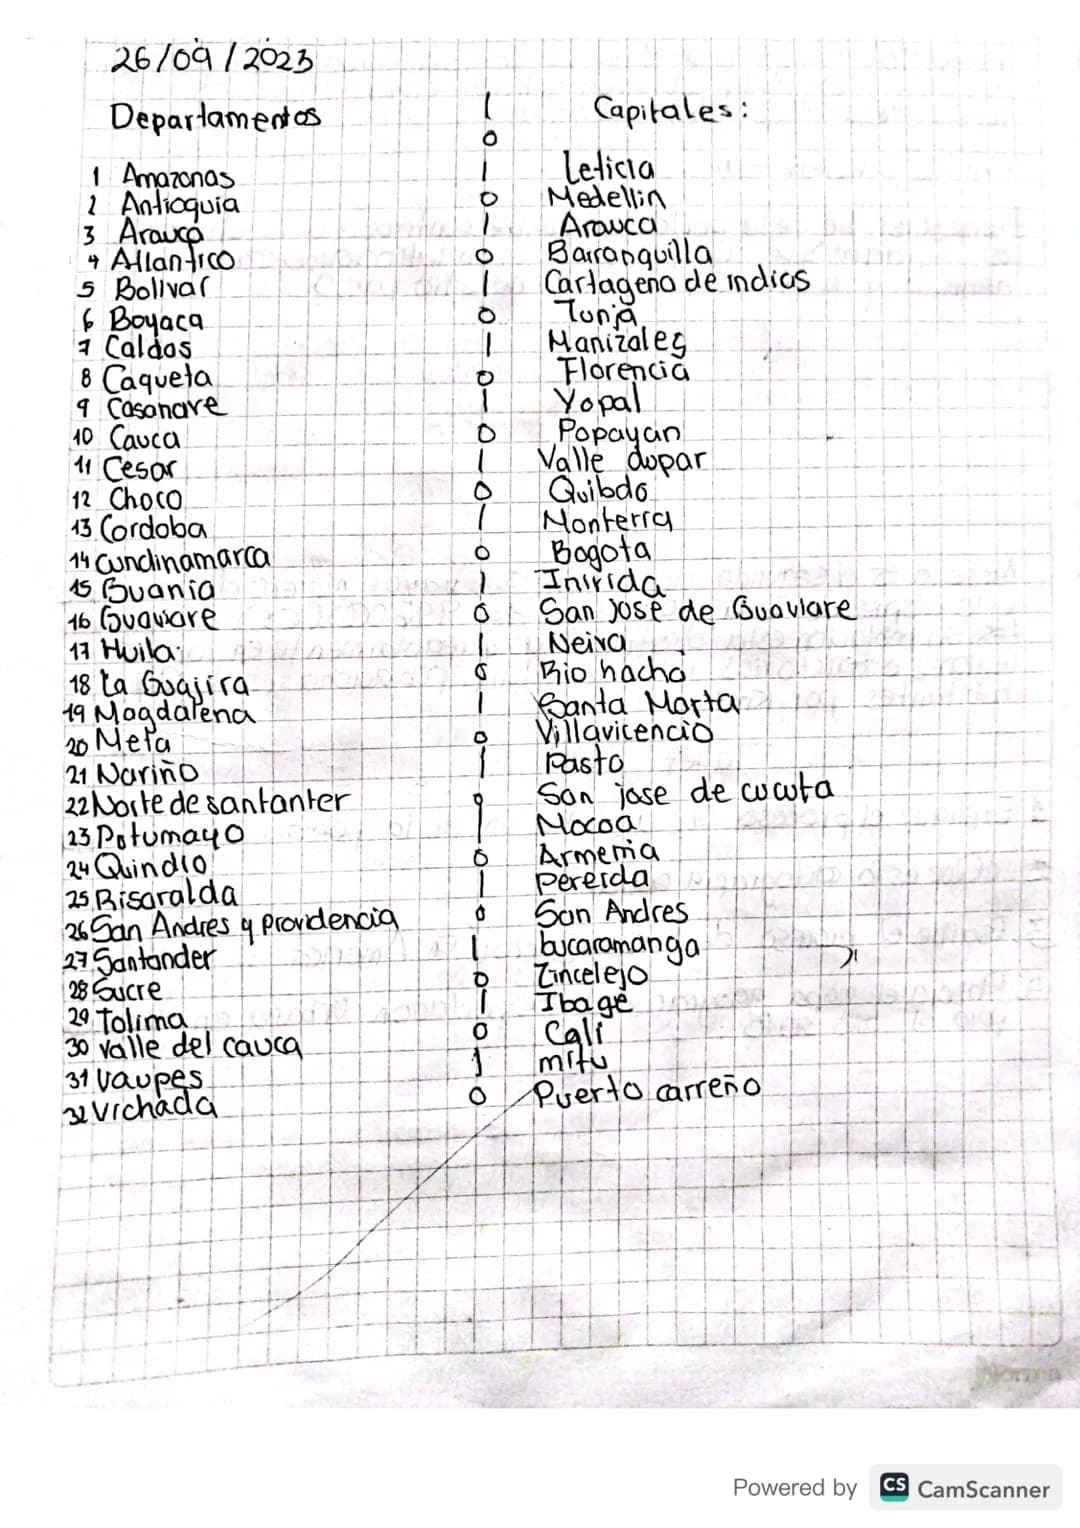 26/09/2023
Departamentos Capitales:
1 Amazonas Leticia
2 Antioquia Medellin
3 Arauca Arauca
4 Atlantico Barranquilla
5 Bolivar Cartagena de indias
6 Boyaca Tunja
7 Caldas Manizales
8 Caqueta Florencia
9 Casanare Yopal
10 Cauca Popayan
11 Cesar Valle dupar
12 Choco Quibdo
13 Cordoba Monterra
14 Cundinamarca Bogota
15 Guania Inirida
16 Guaviare San José de Guaviare
17 Huila Neiva
18 La Guajira Rio hacha
19 Magdalena Santa Marta
20 Meta Villavicencio
21 Nariño Pasto
22 Norte de santanter San jose de cucuta
23 Potumayo Mocoa
24 Quindio Armenia
25 Risaralda Pererda
26 San Andres y providencia San Andres
27 Santander bucaramanga
28 Sucre Zincelejo
29 Tolima Ibagé
30 valle del cauca Cali
31 vaupes mitu
32 vichada Puerto carreño
Norma
Powered by CS CamScanner